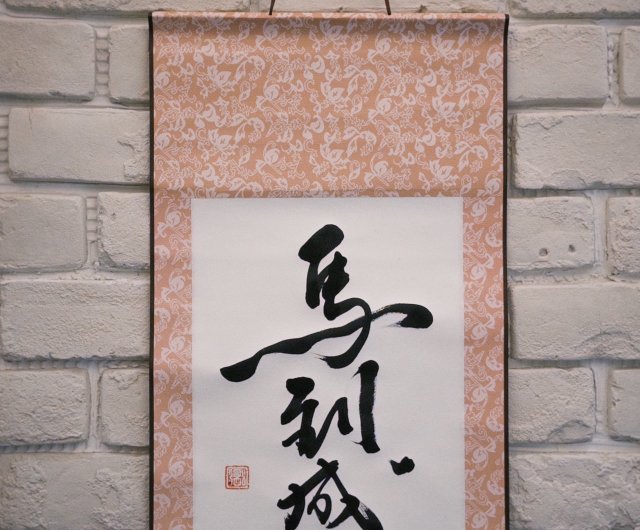 馬到成